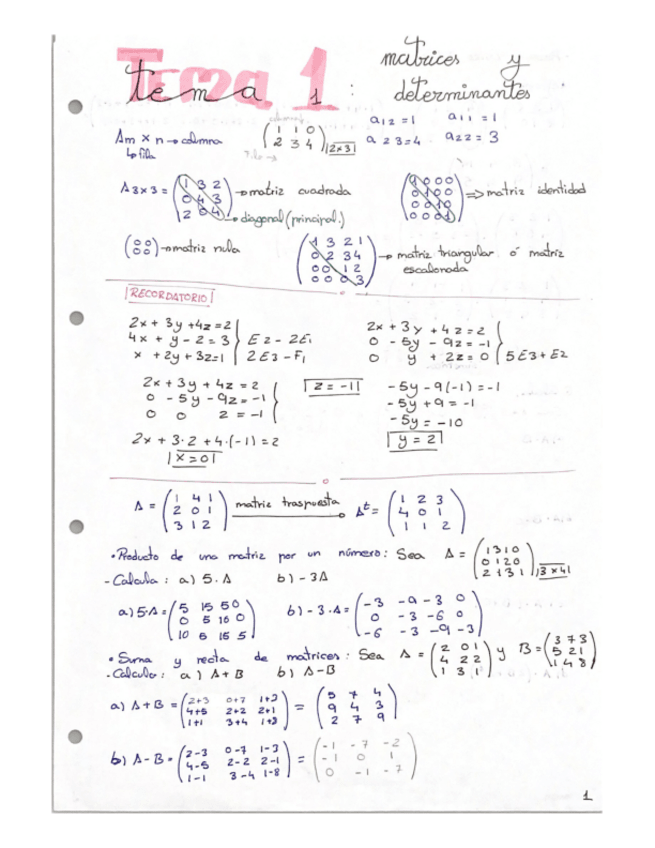 Tema 1
tema 1: matrices y determinantes
Am x n → columna
↳ fila
(1 1 0
2 3 4) 2x3
a12 = 1 a11 = 1
a23=4 a22 = 3
A3x3 = (1 3 2
0 4 3
2 0 4) → matriz cuadrada
→ diagonal (principal.)
(1 0 0 0
0 1 0 0
0 0 1 0
0 0 0 1) ⇒ matriz identidad
(0 0
0 0) → matriz nula
(1 3 2 1
0 2 3 4
0 0 1 2
0 0 0 3) → matriz triangular ó matriz escalonada
RECORDATORIO
2x + 3y + 4z = 2
4x + y - 2 = 3 } E2 - 2E1
x + 2y + 3z = 1 2E3 - F1
2x + 3y + 4z = 2
0 - 5y - 9z = -1
0 y + 2z = 0 } 5E3 + E2
2x + 3y + 4z = 2
0 - 5y - 9z = -1
0 0 z = -1
z = -1
-5y - 9(-1) = -1
-5y + 9 = -1
-5y = -10
y = 2
2x + 3·2 + 4·(-1) = 2
x = 0
A = (1 4 1
2 0 1
3 1 2) matriz traspuesta → A^t = (1 2 3
4 0 1
1 1 2)
• Producto de una matriz por un número: Sea A = (1 3 1 0
0 1 2 0
2 1 3 1) 3x4
- Calcula: a) 5·A b) -3A
a) 5·A = (5 15 5 0
0 5 10 0
10 5 15 5) b) -3·A = (-3 -9 -3 0
0 -3 -6 0
-6 -3 -9 -3)
• Suma y resta de matrices: Sea A = (2 0 1
4 2 2
1 3 1) y B = (3 7 3
5 2 1
1 4 8)
- Calcula: a) A+B b) A-B
a) A+B = (2+3 0+7 1+3
4+5 2+2 2+1
1+1 3+4 1+8) = (5 7 4
9 4 3
2 7 9)
b) A-B = (2-3 0-7 1-3
4-5 2-2 2-1
1-1 3-4 1-8) = (-1 -7 -2
-1 0 1
0 -1 -7)
1